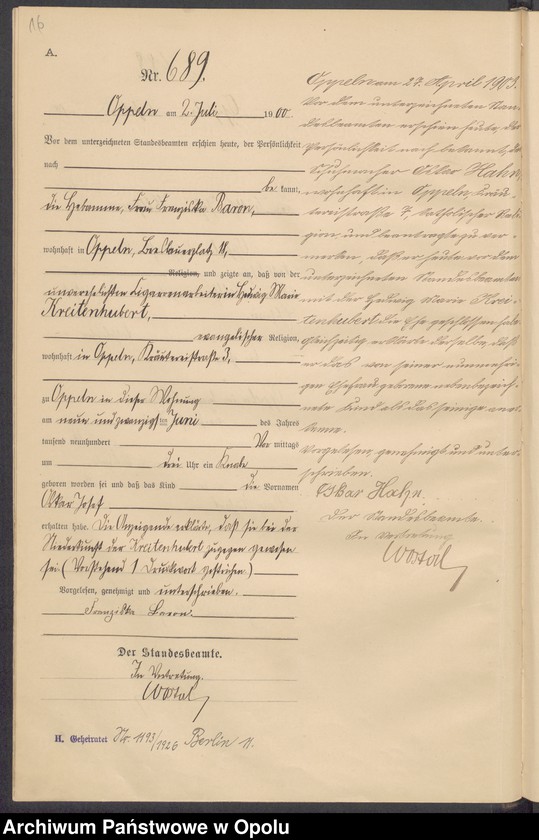 16
A.
Nr. 689.
Oppeln am 2. Juli 1900
Vor dem unterzeichneten Standesbeamten erschien heute, der Persönlichkeit
nach
be kannt,
die Hebamme, Frau Franziska Baron,
wohnhaft in Oppeln, Breslauerplatz 11,
Religion, und zeigte an, daß von der
unverehelichten Cigarrenarbeiterin Hedwig Marie
Kreitenhubert,
evangelischer Religion,
wohnhaft in Oppeln, Kräutereistraße 3,
zu Oppeln in dieser Wohnung
am neun und zwanzigsten Juni des Jahres
tausend neunhundert Vor mittags
um drei Uhr ein Knabe
geboren worden sei und daß das Kind die Vornamen
Oskar Josef
erhalten habe. Die Anzeigende erklärte, daß sie bei der
Niederkunft der Kreitenhubert zugegen gewesen
sei (Vorstehend 1 Druckwort gestrichen.)
Vorgelesen, genehmigt und unterschrieben.
Franziska Baron.
Der Standesbeamte.
In Vertretung.
Wostal
H. Geheiratet Nr. 1193/1926 Berlin 11.
Oppeln am 27. April 1903.
Vor dem unterzeichneten Stan-
desbeamten erschien heute, der
Persönlichkeit nach bekannt, der
Schuhmacher Oskar Hahn,
wohnhaft in Oppeln, Kräu-
tereistraße 7, katholischer Reli-
gion und beantragte zu ver-
merken, daß er heute vor dem
unterzeichneten Standesbeamten
mit der Hedwig Marie Krei-
tenhubert die Ehe geschlossen habe.
Gleichzeitig erklärte derselbe, daß
er das von seiner nunmehri-
gen Ehefrau geborene nebenbezeich-
nete Kind als das seinige aner-
kenne.
Vorgelesen, genehmigt und unter-
schrieben.
Oskar Hahn.
Der Standesbeamte.
In Vertretung
Wostal
Archiwum Państwowe w Opolu